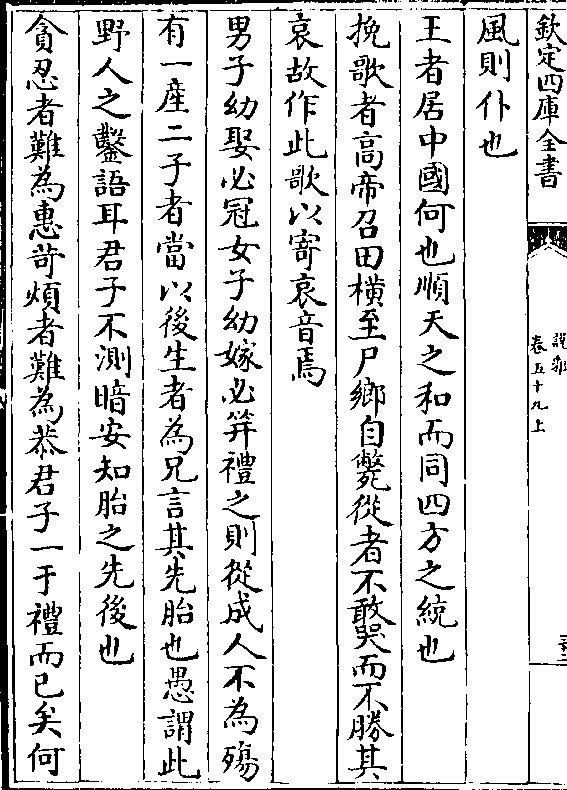 欽定四庫全書
說郛
卷五十九上
風則仆也
王者居中國何也順天之和而同四方之統也
挽歌者高帝召田橫至尸鄉自斃從者不敢哭而不勝其
哀故作此歌以寄哀音焉
男子幼娶必冠女子幼嫁必笄禮之則從成人不為殤
有一產二子者當以後生者為兄言其先胎也愚謂此
野人之鑿語耳君子不測暗安知胎之先後也
貪忍者難為惠苛煩者難為恭君子一于禮而已矣何